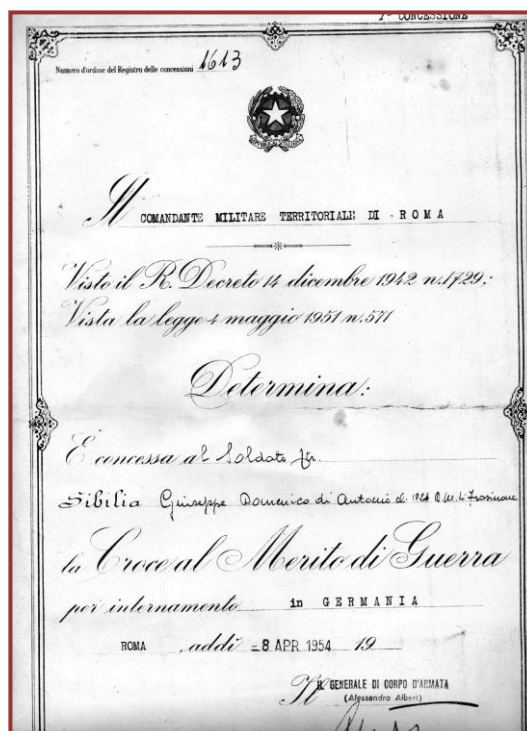 1ª CONCESSIONE
Numero d'ordine del Registro delle concessioni 1613
REPVBBLICA ITALIANA
Il COMANDANTE MILITARE TERRITORIALE DI ROMA
Visto il R. Decreto 14 dicembre 1942 n. 1729;
Vista la legge 4 maggio 1951 n. 571
Determina:
È concessa al Soldato ftr.
Sibilia Giuseppe Domenico di Antonio cl. 1924 D.M. di Frosinone
la Croce al Merito di Guerra
per internamento in GERMANIA
ROMA addì -8 APR 1954 19
Il GENERALE DI CORPO D'ARMATA
(Alessandro Alberi)